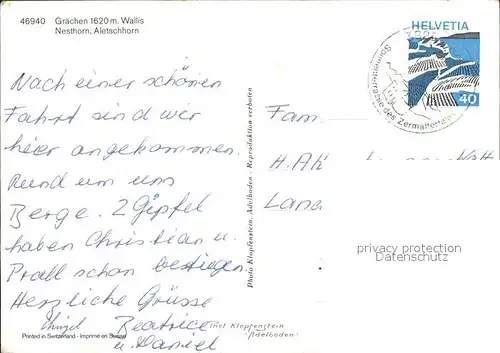 46940 Grächen 1620 m. Wallis
Nesthorn, Aletschhorn
Nach einer schönen
Fahrt sind wir
hier angekommen.
Rund um uns
Berge. 2 Gipfel
haben Christian u.
Prall schon bestiegen
Herzliche Grüsse
Beatrice
u. Daniel
Printed in Switzerland - Imprimé en Suisse
Photo Klopfenstein, Adelboden - Reproduktion verboten
Thöt Klopfenstein
"Adelboden"
HELVETIA
40
Sonnenterrasse des Zermattertales
Fam
H. Ak
Lan
privacy protection
Datenschutz